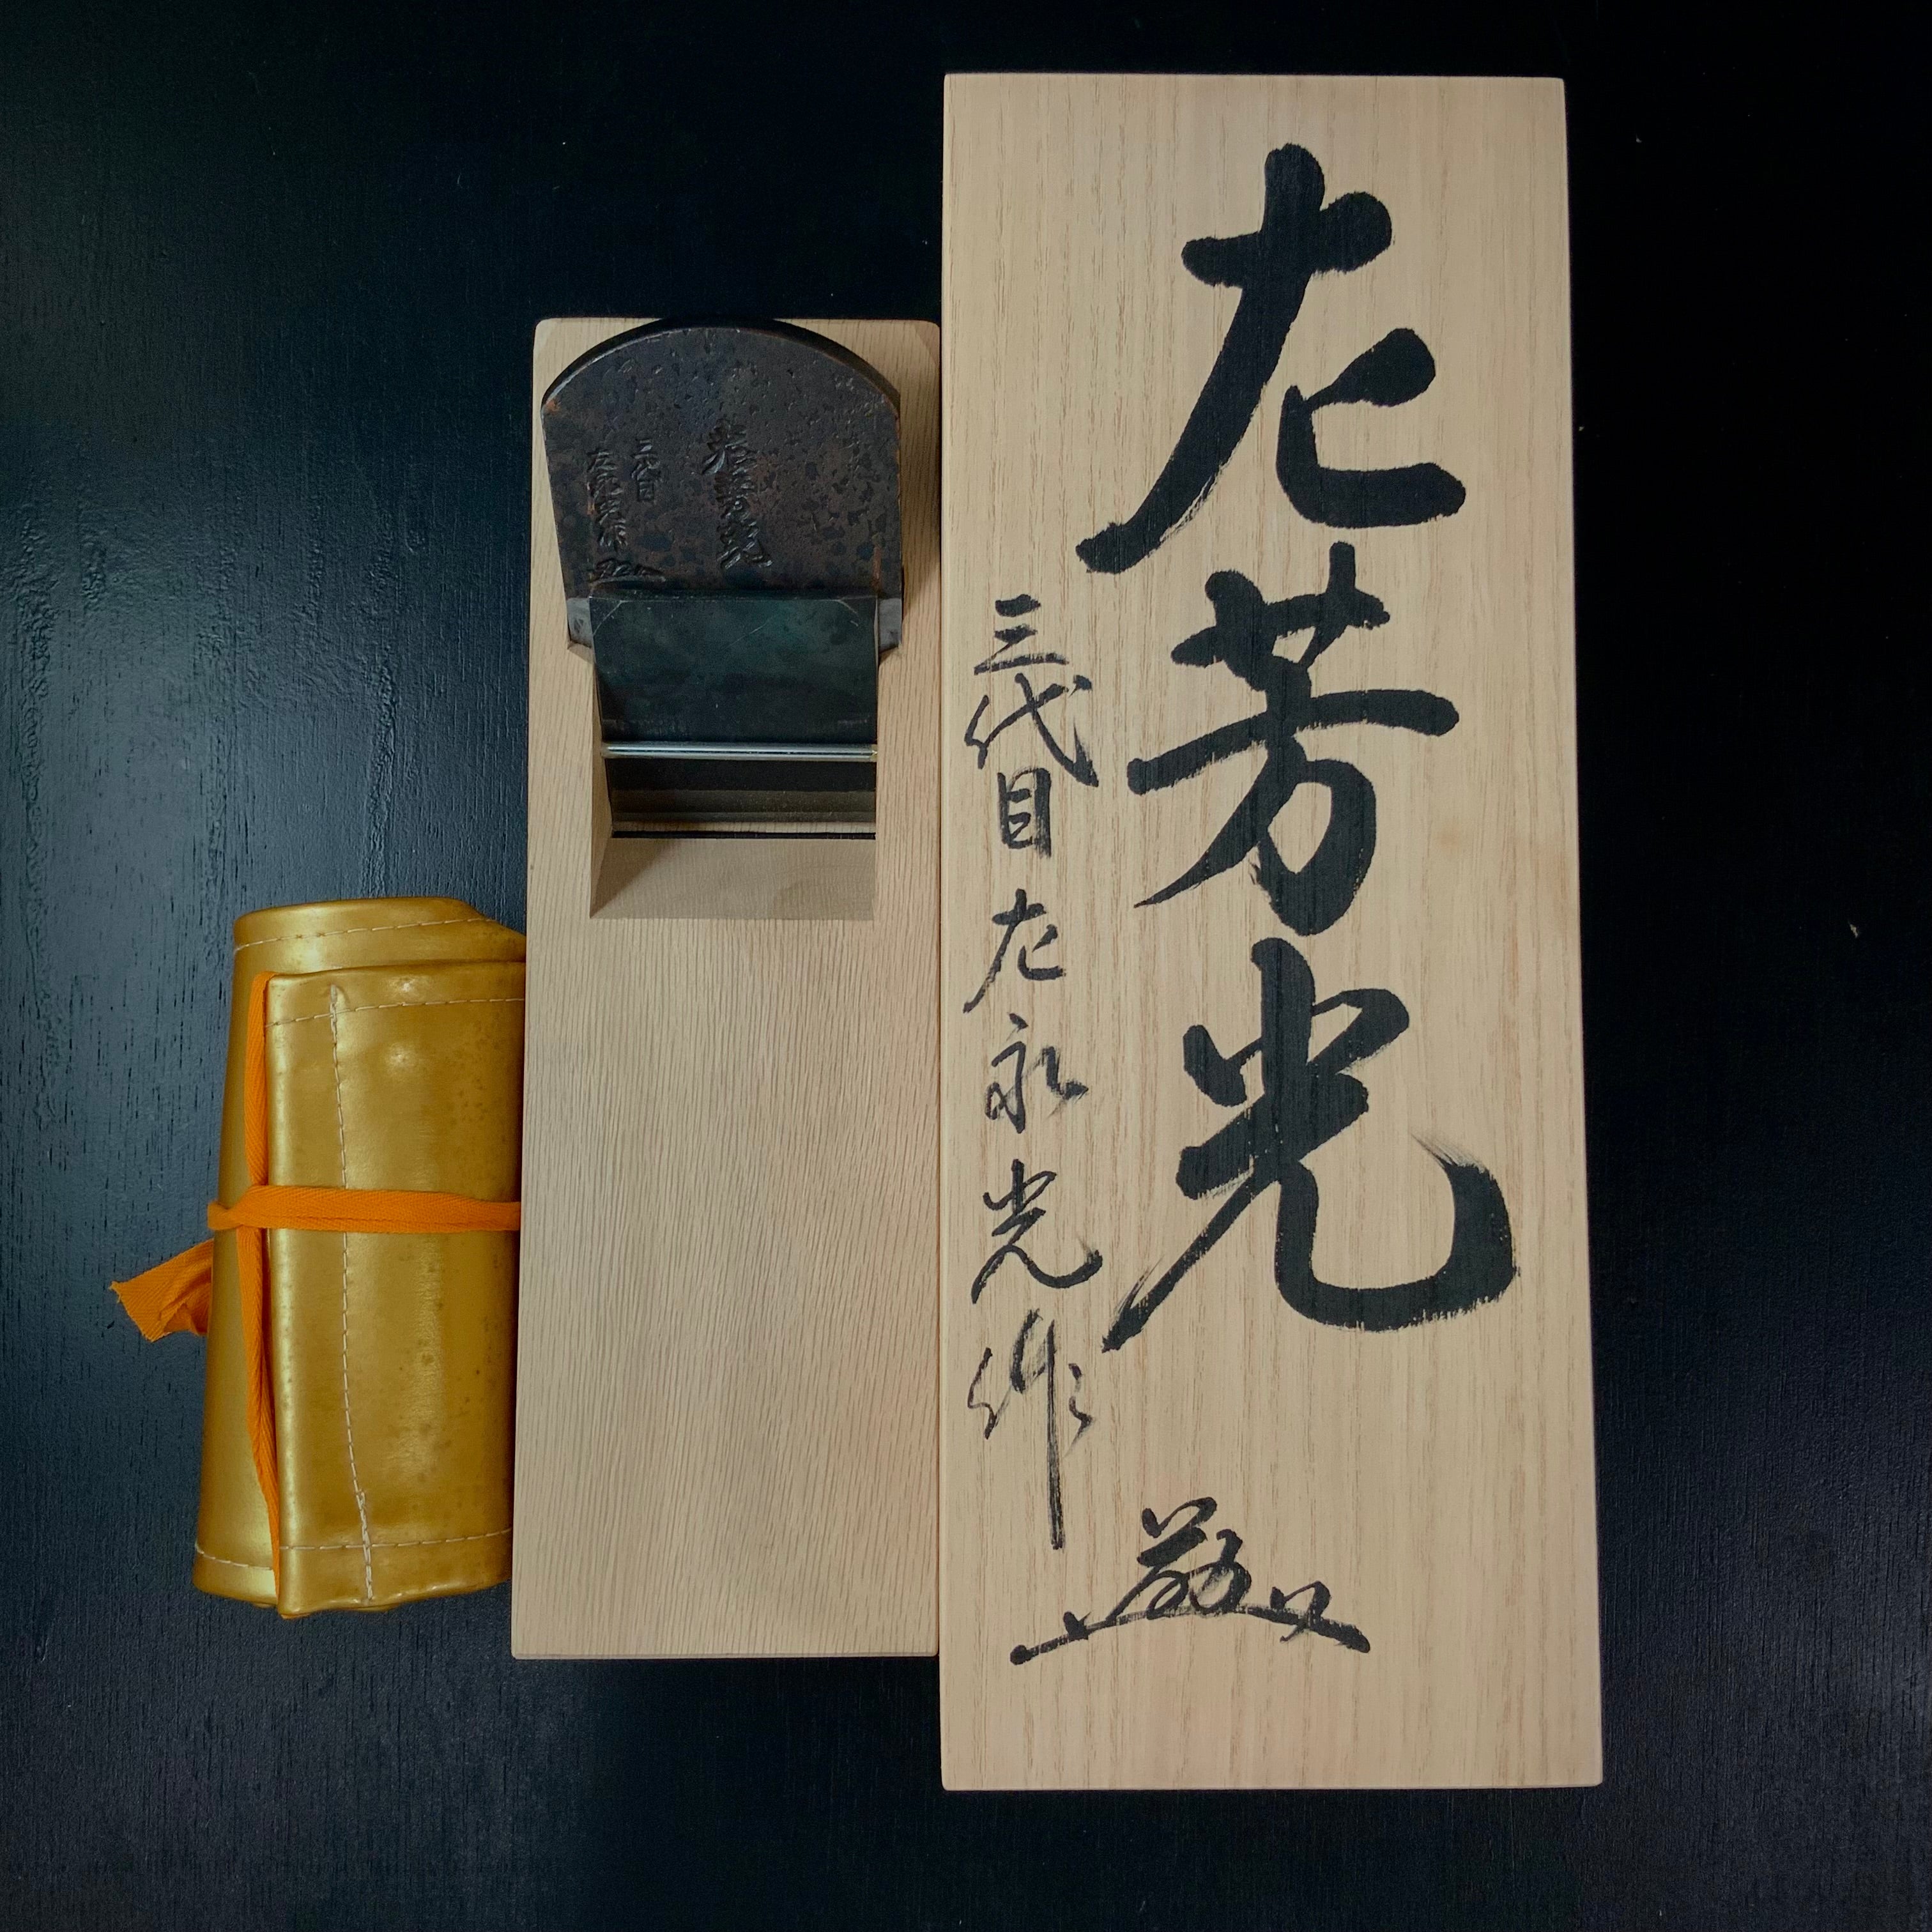 左芳光
三代目左永光作
左芳光
三代目
左永光作